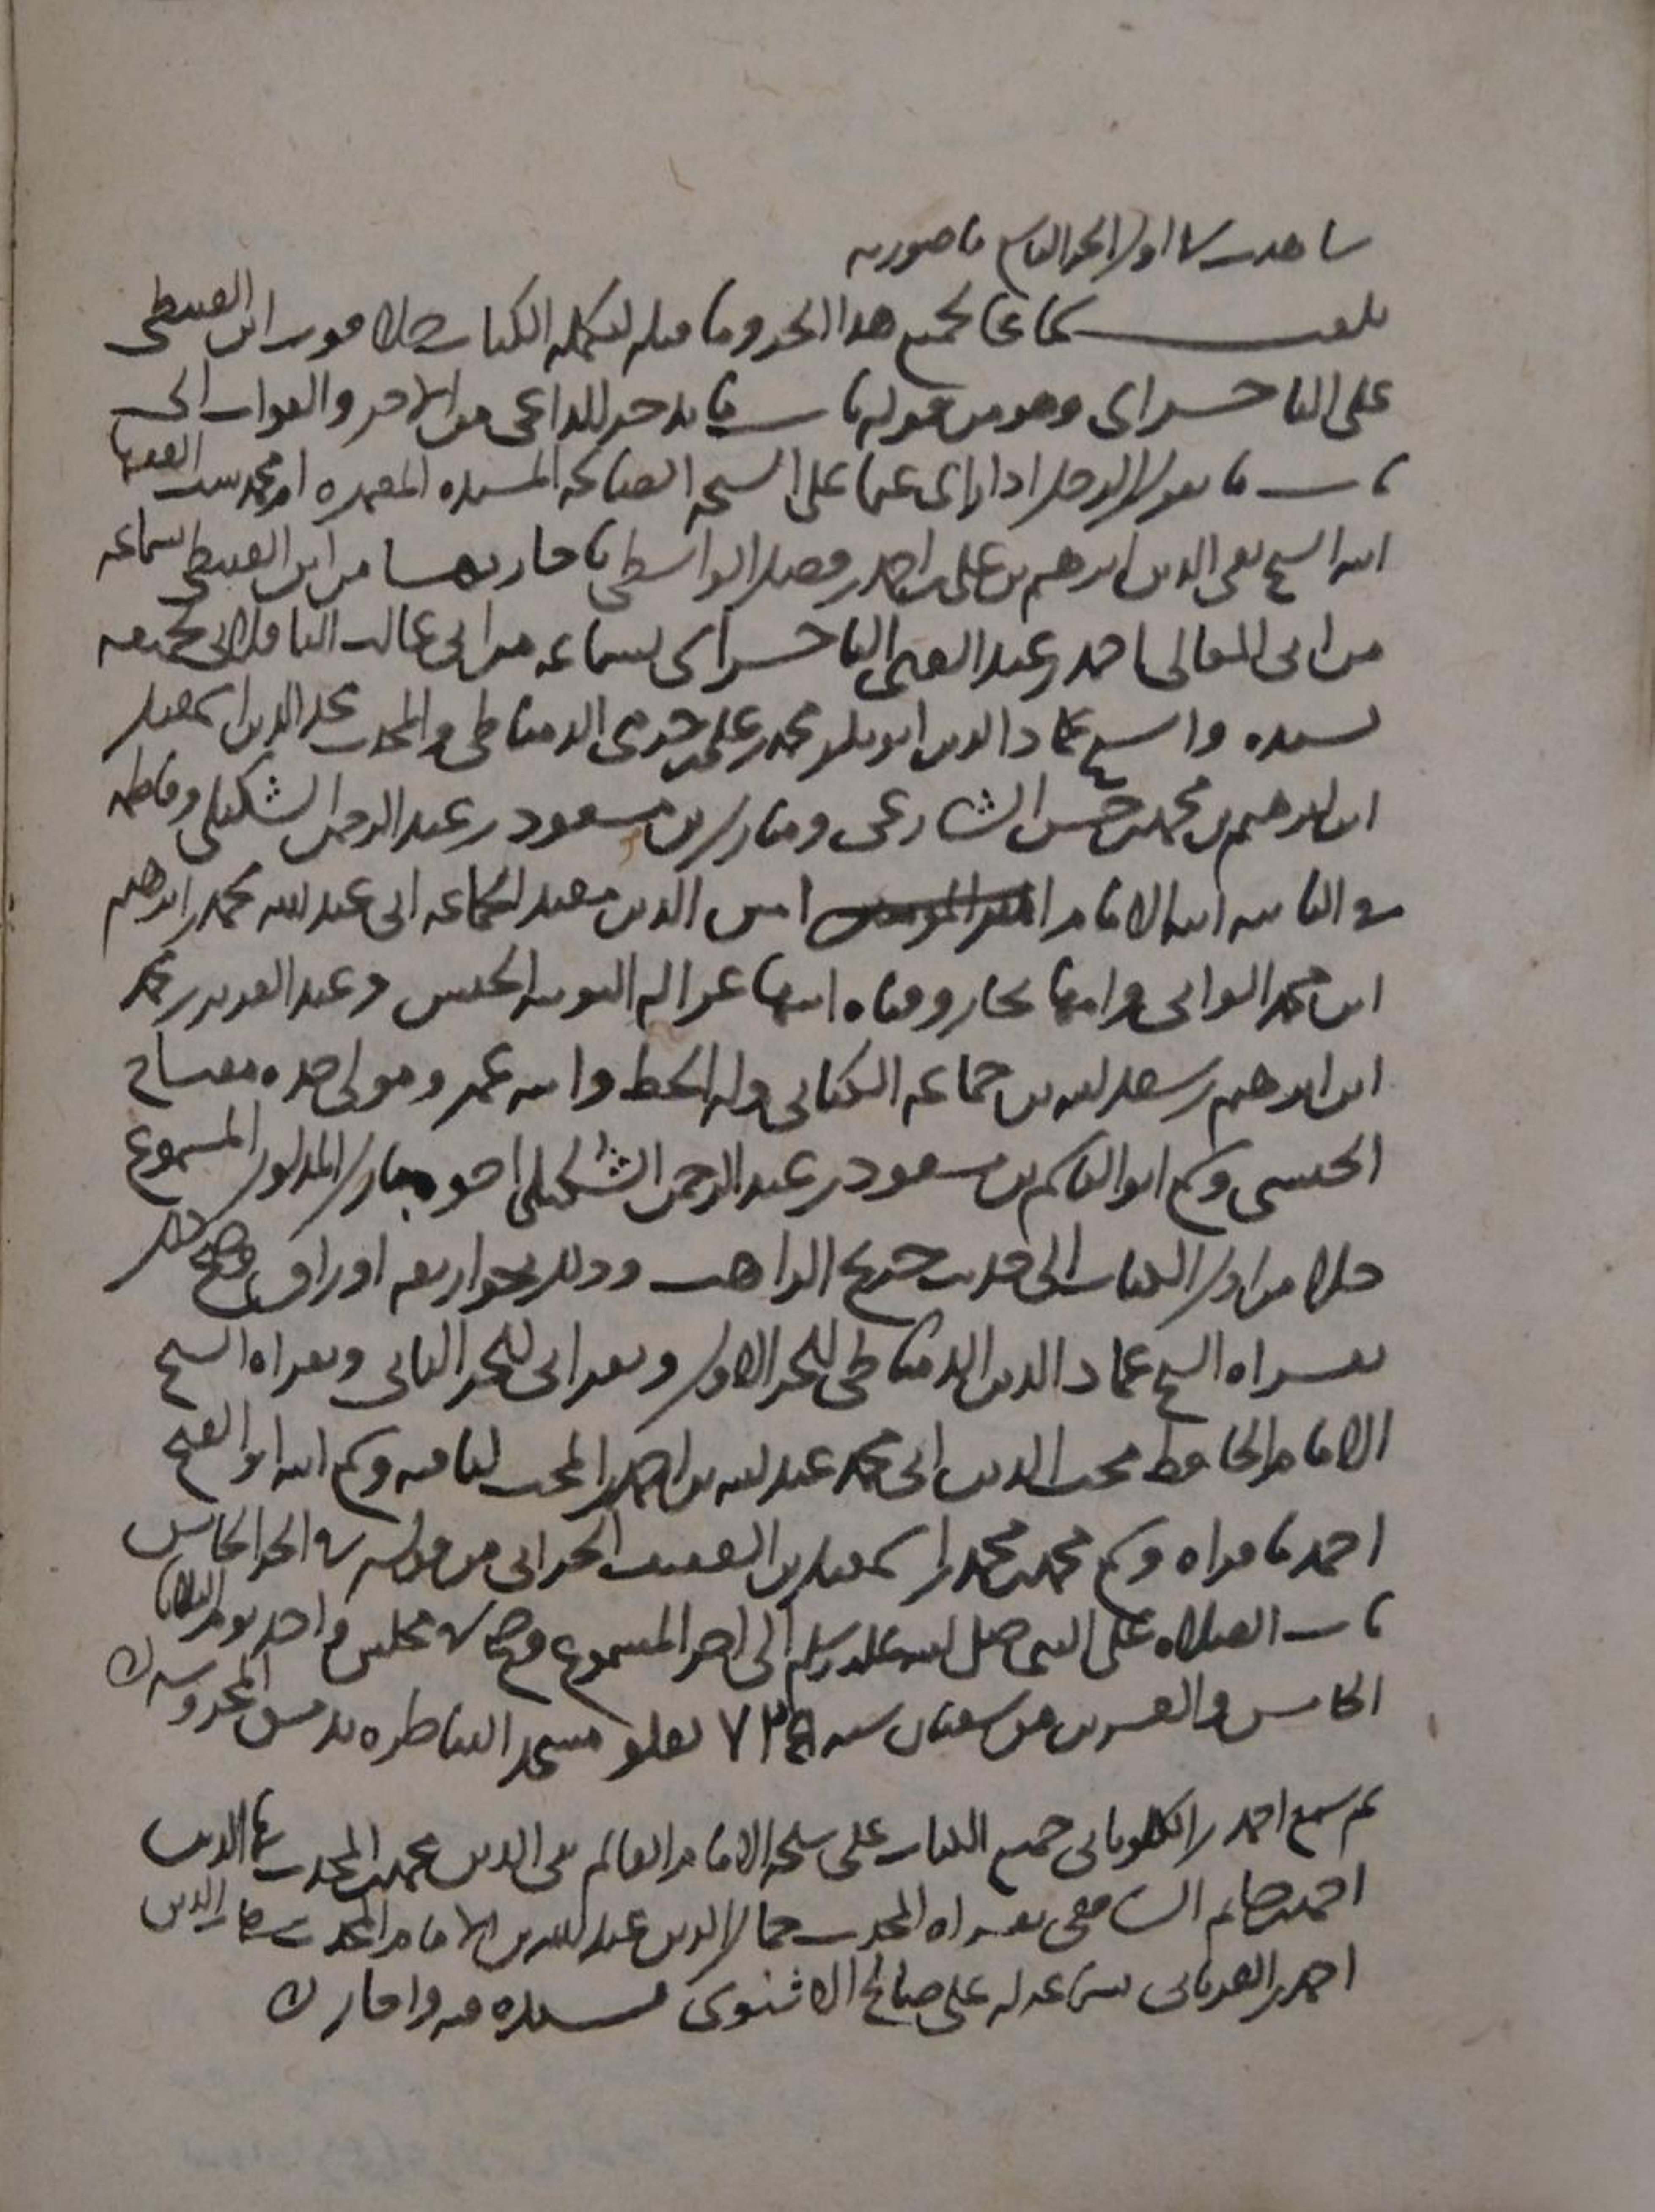 شاهدت في اول الجزء الثامن ما صورته
بلغت سماعا لجميع هذا الجزء وما قبله لتكملة الكتاب خلا فوت ابن القبيطي
على الباجسرائي وهو من قوله باب ما يدخر للداعي من الاجر والثواب الى
باب ما يقول الرجل اذا على الشيخة الصالحة المسندة المعمرة ام محمد ست الفقها
ابنة الشيخ تقي الدين ابرهيم بن علي بن احمد بن فضل الواسطي باجازتها من ابن القبيطي بسماعه
من ابي المعالي احمد بن عبد الغني الباجسرائي بسماعه من ابي غالب الباقلاني بجميعه
بسنده والشيخ عماد الدين ابو بكر محمد بن علي بن حرمي الدمياطي والمحدث مجد الدين اسمعيل
ابن ابرهيم بن محمد بن حسن الشارعي ومبارك بن مسعود بن عبد الرحمن الشكيلي وفاطمة
في الثانية ابنة الامام امين الدين مفيد الجماعة ابي عبد الله محمد بن ابرهيم
ابن محمد الواني وامها وفتاه ابيها غزاله النوبية الحبش وعبد العزيز بن محمد
ابن ابرهيم بن سعد الله بن جماعة الكناني وله الخط وابنه عمر ومولى جده
الحبشي وسمع ابو القاسم بن مسعود بن عبد الرحمن الشكيلي اخو مبارك المذكور المسموع
خلا من اول الكتاب الى حديث جريج الراهب وذلك نحو اربعة اوراق وصح ذلك
بقراة الشيخ عماد الدين الدمياطي للجزء الاول وبقراتي للجزء الثاني وبقراة الشيخ
الامام الحافظ محب الدين ابي محمد عبد الله بن احمد بن المحب لباقيه وسمع ابنه ابو الفتح
احمد ما قراه وسمع محمد بن محمد بن اسمعيل بن الحراني من قوله في الجزء الخامس
باب الصلاه على النبي صلى الله عليه وسلم الى اخر المسموع وصح في مجلس واحد يوم الثلاثا
الخامس والعشرين من شعبان سنة ٧٢٥ بعلو مسجد المناظره بدمشق المحروسة
ثم سمع احمد بن الكلوتاتي جميع الكتاب على شيخه الامام العالم تقي الدين محمد بن المحدث بهاء الدين
احمد بن حاتم الشافعي بقراة المحدث جمال الدين عبد الله بن الامام المحدث شهاب الدين
احمد بن العرياني بسماعه له على صالح الاشنوي بسنده فيه واجاز